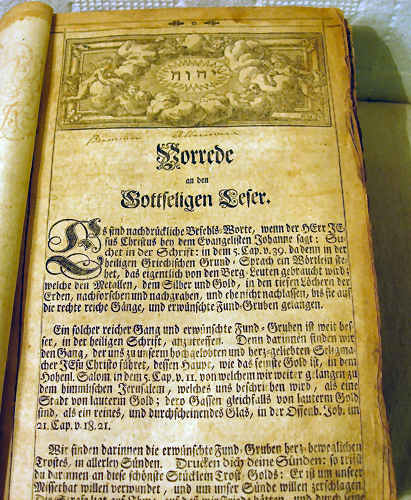 יהוה
Vorrede
an den
Gottseligen Leser.
Es sind nachdrückliche Befehls-Worte, wenn der HErr JE-
sus Christus bey dem Evangelisten Johanne sagt: Su-
chet in der Schrift: in dem 5. Cap. v. 39. da denn in der
heiligen Griechischen Grund-Sprach ein Wörtlein ste-
het, das eigentlich von den Berg-Leuten gebraucht wird;
welche den Metallen, dem Silber und Gold, in den tiefen Löchern der
Erden, nachforschen und nachgraben, und ehe nicht nachlassen, bis sie auf
die rechte reiche Gänge, und erwünschte Fund-Gruben gelangen.
Ein solcher reicher Gang und erwünschte Fund-Gruben ist weit bes-
ser, in der heiligen Schrift, anzutreffen. Denn darinnen finden wir
den Gang, der uns zu unserm hochgelobten und herz-geliebten Seligma-
cher JEsu Christo führet, dessen Haupt, wie das feinste Gold ist, in dem
Hohenl. Salom. in dem 5. Cap. v. 11. von welchem wir weiter gelangen zu
dem himmlischen Jerusalem, welches uns beschrieben wird, als eine
Stadt von lauterm Gold; dero Gassen gleichfalls von lauterm Gold
sind, als ein reines, und durchscheinendes Glas, in der Offenb. Joh. im
21. Cap. v. 18. 21.
Wir finden darinnen die erwünschte Fund-Gruben herz-beweglichen
Trostes, in allerley Sünden. Drucken dich deine Sünden: so trifst
du darinnen an diese schönste Stücklein Trost-Golds: Er ist um unser
Missethat willen verwundet, und um unser Sünde willen zerschlagen.